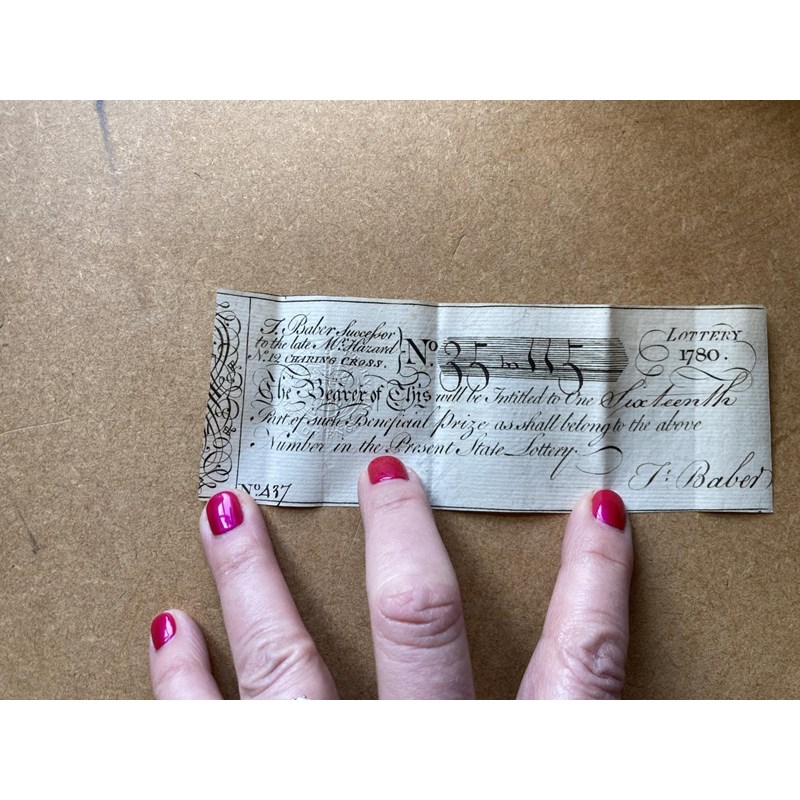 T. Baber Successor
to the late Mr. Hazard
No. 12 CHARING CROSS.
No. 35 m 115
LOTTERY
1780.
The Bearer of This will be Intitled to One Sixteenth
Part of such Beneficial Prize as shall belong to the above
Number in the Present State Lottery.
Ts. Baber
No. 437